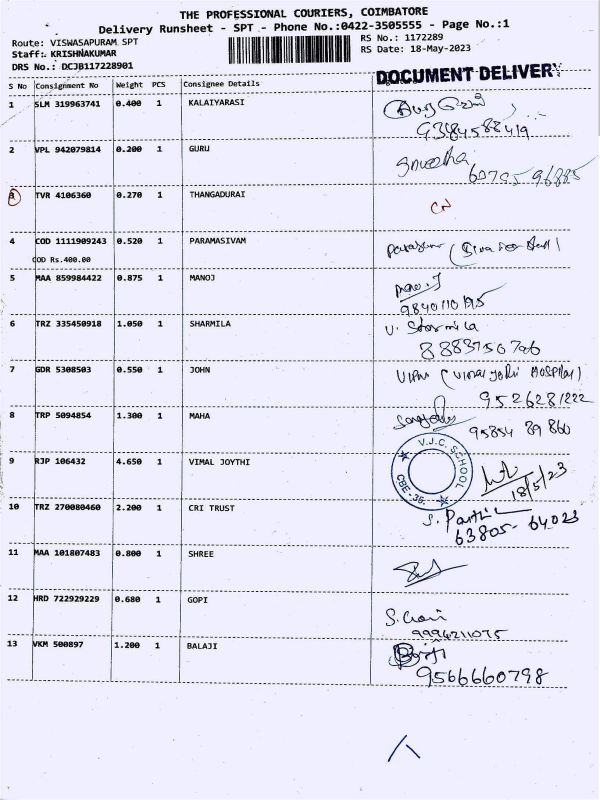 THE PROFESSIONAL COURIERS, COIMBATORE
Delivery Runsheet - SPT - Phone No.:0422-3505555 - Page No.:1
Route: VISWASAPURAM SPT RS No.: 1172289
Staff: KRISHNAKUMAR RS Date: 18-May-2023
DRS No.: DCJB117228901
DOCUMENT DELIVERY
S No Consignment No Weight PCS Consignee Details
1 SLM 319963741 0.400 1 KALAIYARASI
9384588419
2 VPL 942079814 0.200 1 GURU
60795 96885
3 TVR 4106360 0.270 1 THANGADURAI
CN
4 COD 1111909243 0.520 1 PARAMASIVAM
COD Rs.400.00
5 MAA 859984422 0.875 1 MANOJ
9840110195
6 TRZ 335450918 1.050 1 SHARMILA U. Sharmila
8883750706
7 GDR 5308503 0.550 1 JOHN
HOSPITAL)
9526281222
8 TRP 5094854 1.300 1 MAHA
95854 89 860
V.J.C. SCHOOL
CBE - 35.
9 RJP 106432 4.650 1 VIMAL JOYTHI
18/5/23
10 TRZ 270080460 2.200 1 CRI TRUST
63805- 64023
11 MAA 101807483 0.800 1 SHREE
12 HRD 722929229 0.680 1 GOPI
9994211075
13 VKM 500897 1.200 1 BALAJI
9566660798